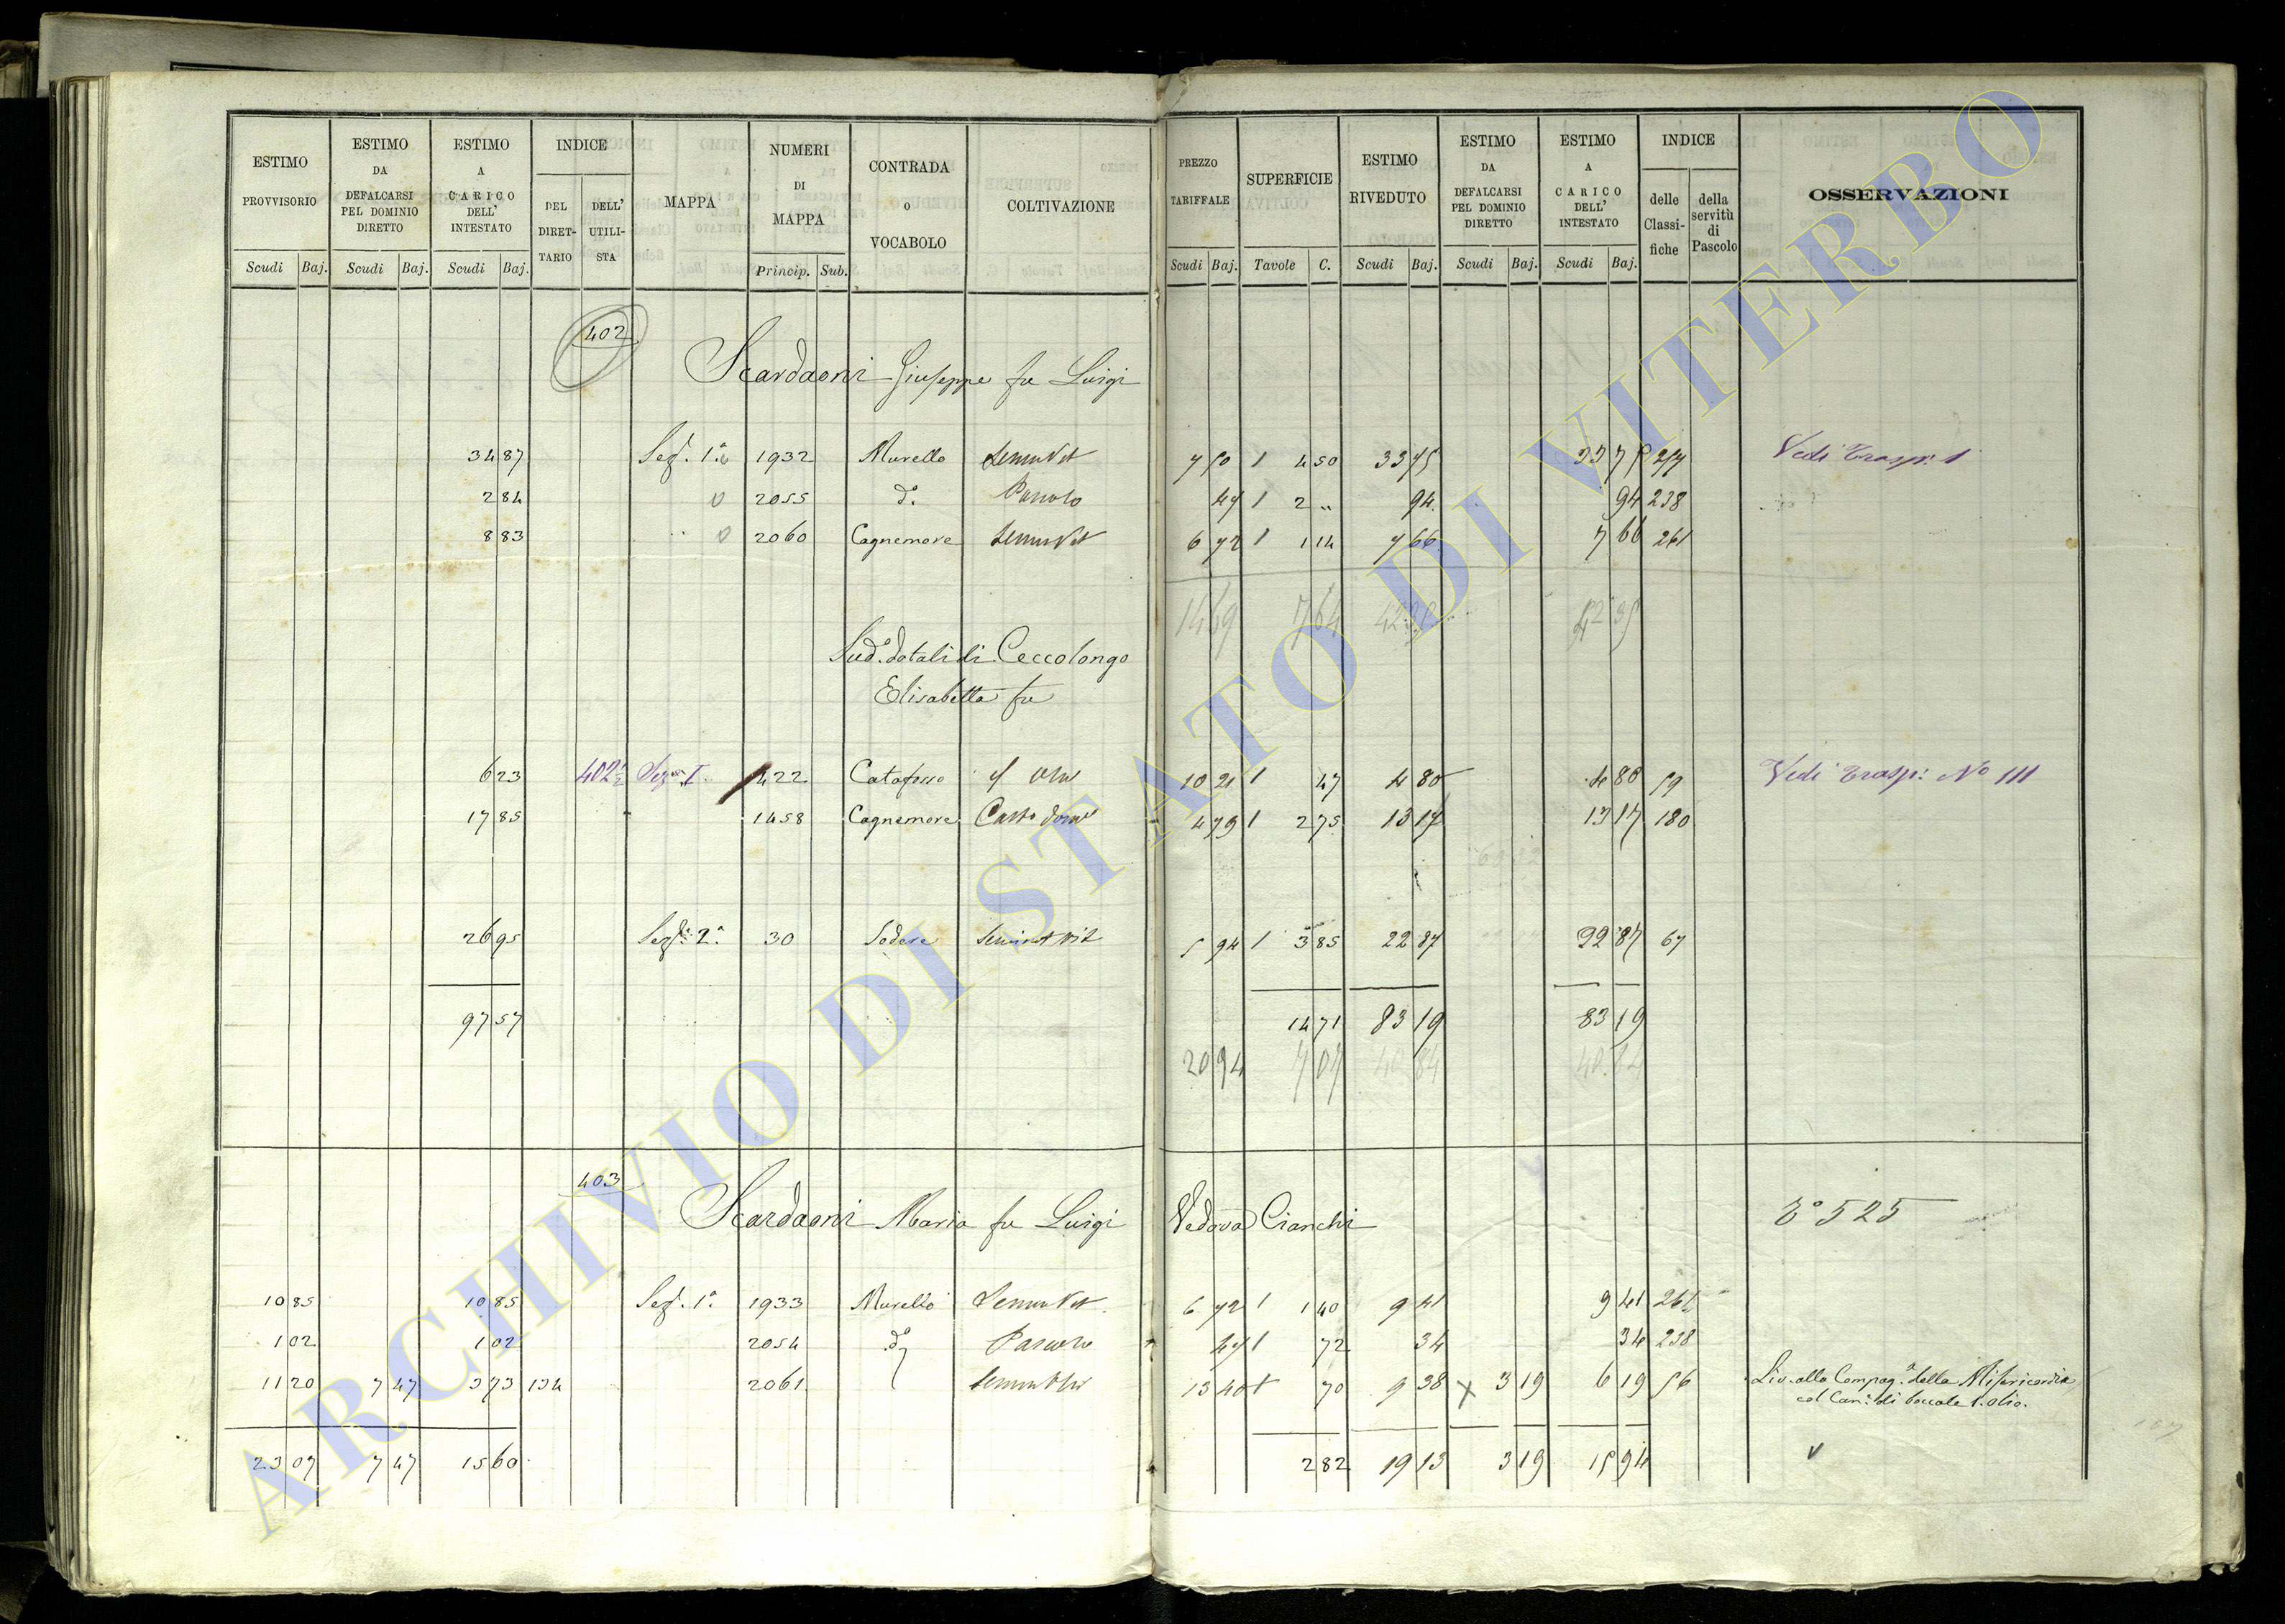 ESTIMO PROVVISORIO | ESTIMO DA DEFALCARSI PEL DOMINIO DIRETTO | ESTIMO A CARICO DELL' INTESTATO | INDICE DEL DIRETTARIO | DELL' UTILISTA | MAPPA | NUMERI DI MAPPA | CONTRADA o VOCABOLO | COLTIVAZIONE | PREZZO TARIFFALE | SUPERFICIE | ESTIMO RIVEDUTO | ESTIMO DA DEFALCARSI PEL DOMINIO DIRETTO | ESTIMO A CARICO DELL' INTESTATO | INDICE delle Classifiche | della servitù di Pascolo | OSSERVAZIONI
Scudi Baj. Scudi Baj. Scudi Baj. Princip. Sub. Scudi Baj. Tavole C. Scudi Baj. Scudi Baj. Scudi Baj.
402
Scardaoni Giuseppe fu Luigi
34 87 Sez. 1a 1932 Murello SeminVit 7 50 1 4 50 33 75 33 75 Vedi Trasp. 1
2 84 2055 do. Pascolo 47 1 2 " 94 94 238
8 83 2060 Cagnemore SeminVit 6 72 1 1 14 7 66 7 66 261
14 69 7 64 42 35
Sud. dotali di Ceccolongo
Elisabetta fu
6 23 402½ Sezne I. 422 Catafosso 10 21 1 47 4 80 4 80 59 Vedi Trasp: No 111
17 85 1458 Cagnemore 4 79 1 2 75 13 17 13 17 180
26 95 Sez. 2a. 30 Sodere Seminat vit 5 94 1 3 85 22 87 22 87 67
97 57 14 71 83 19 83 19
20 94 7 07 40 84 40 84
403
Scardaoni Maria fu Luigi Vedova Cianchi To 525
10 85 10 85 Sez. 1a. 1933 Murello SeminVit 6 72 1 1 40 9 41 9 41 261
1 02 1 02 2054 do Pascolo 47 1 72 34 34 238
11 20 7 47 3 73 134 2061 13 40 1 70 9 38 X 3 19 6 19 56 Liv. alla Compag.a della Misericordia
col Can.e di boccale 1. olio.
23 07 7 47 15 60 2 82 19 13 3 19 15 94 v
ARCHIVIO DI STATO DI VITERBO